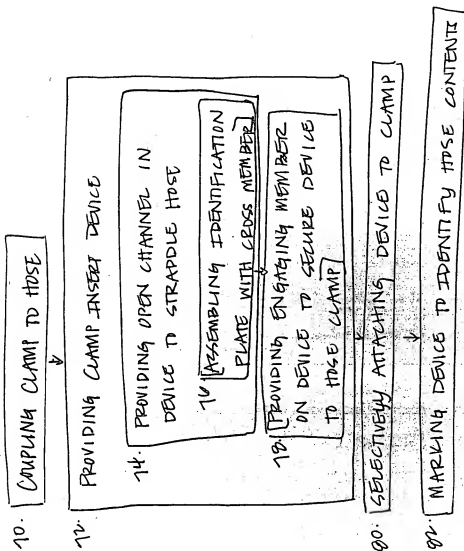 70. COUPLING CLAMP TO HOSE
72. PROVIDING CLAMP INSERT DEVICE
74. PROVIDING OPEN CHANNEL IN
DEVICE TO STRADDLE HOSE
76. ASSEMBLING IDENTIFICATION
PLATE WITH CROSS MEMBER
78. PROVIDING ENGAGING MEMBER
ON DEVICE TO SECURE DEVICE
TO HOSE CLAMP
80. SELECTIVELY ATTACHING DEVICE TO CLAMP
82. MARKING DEVICE TO IDENTIFY HOSE CONTENTS